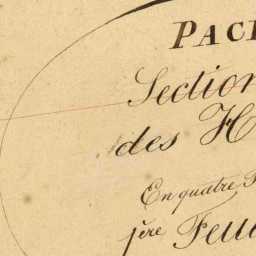 PAC
Section
des H
En quatre F
1ère Feu